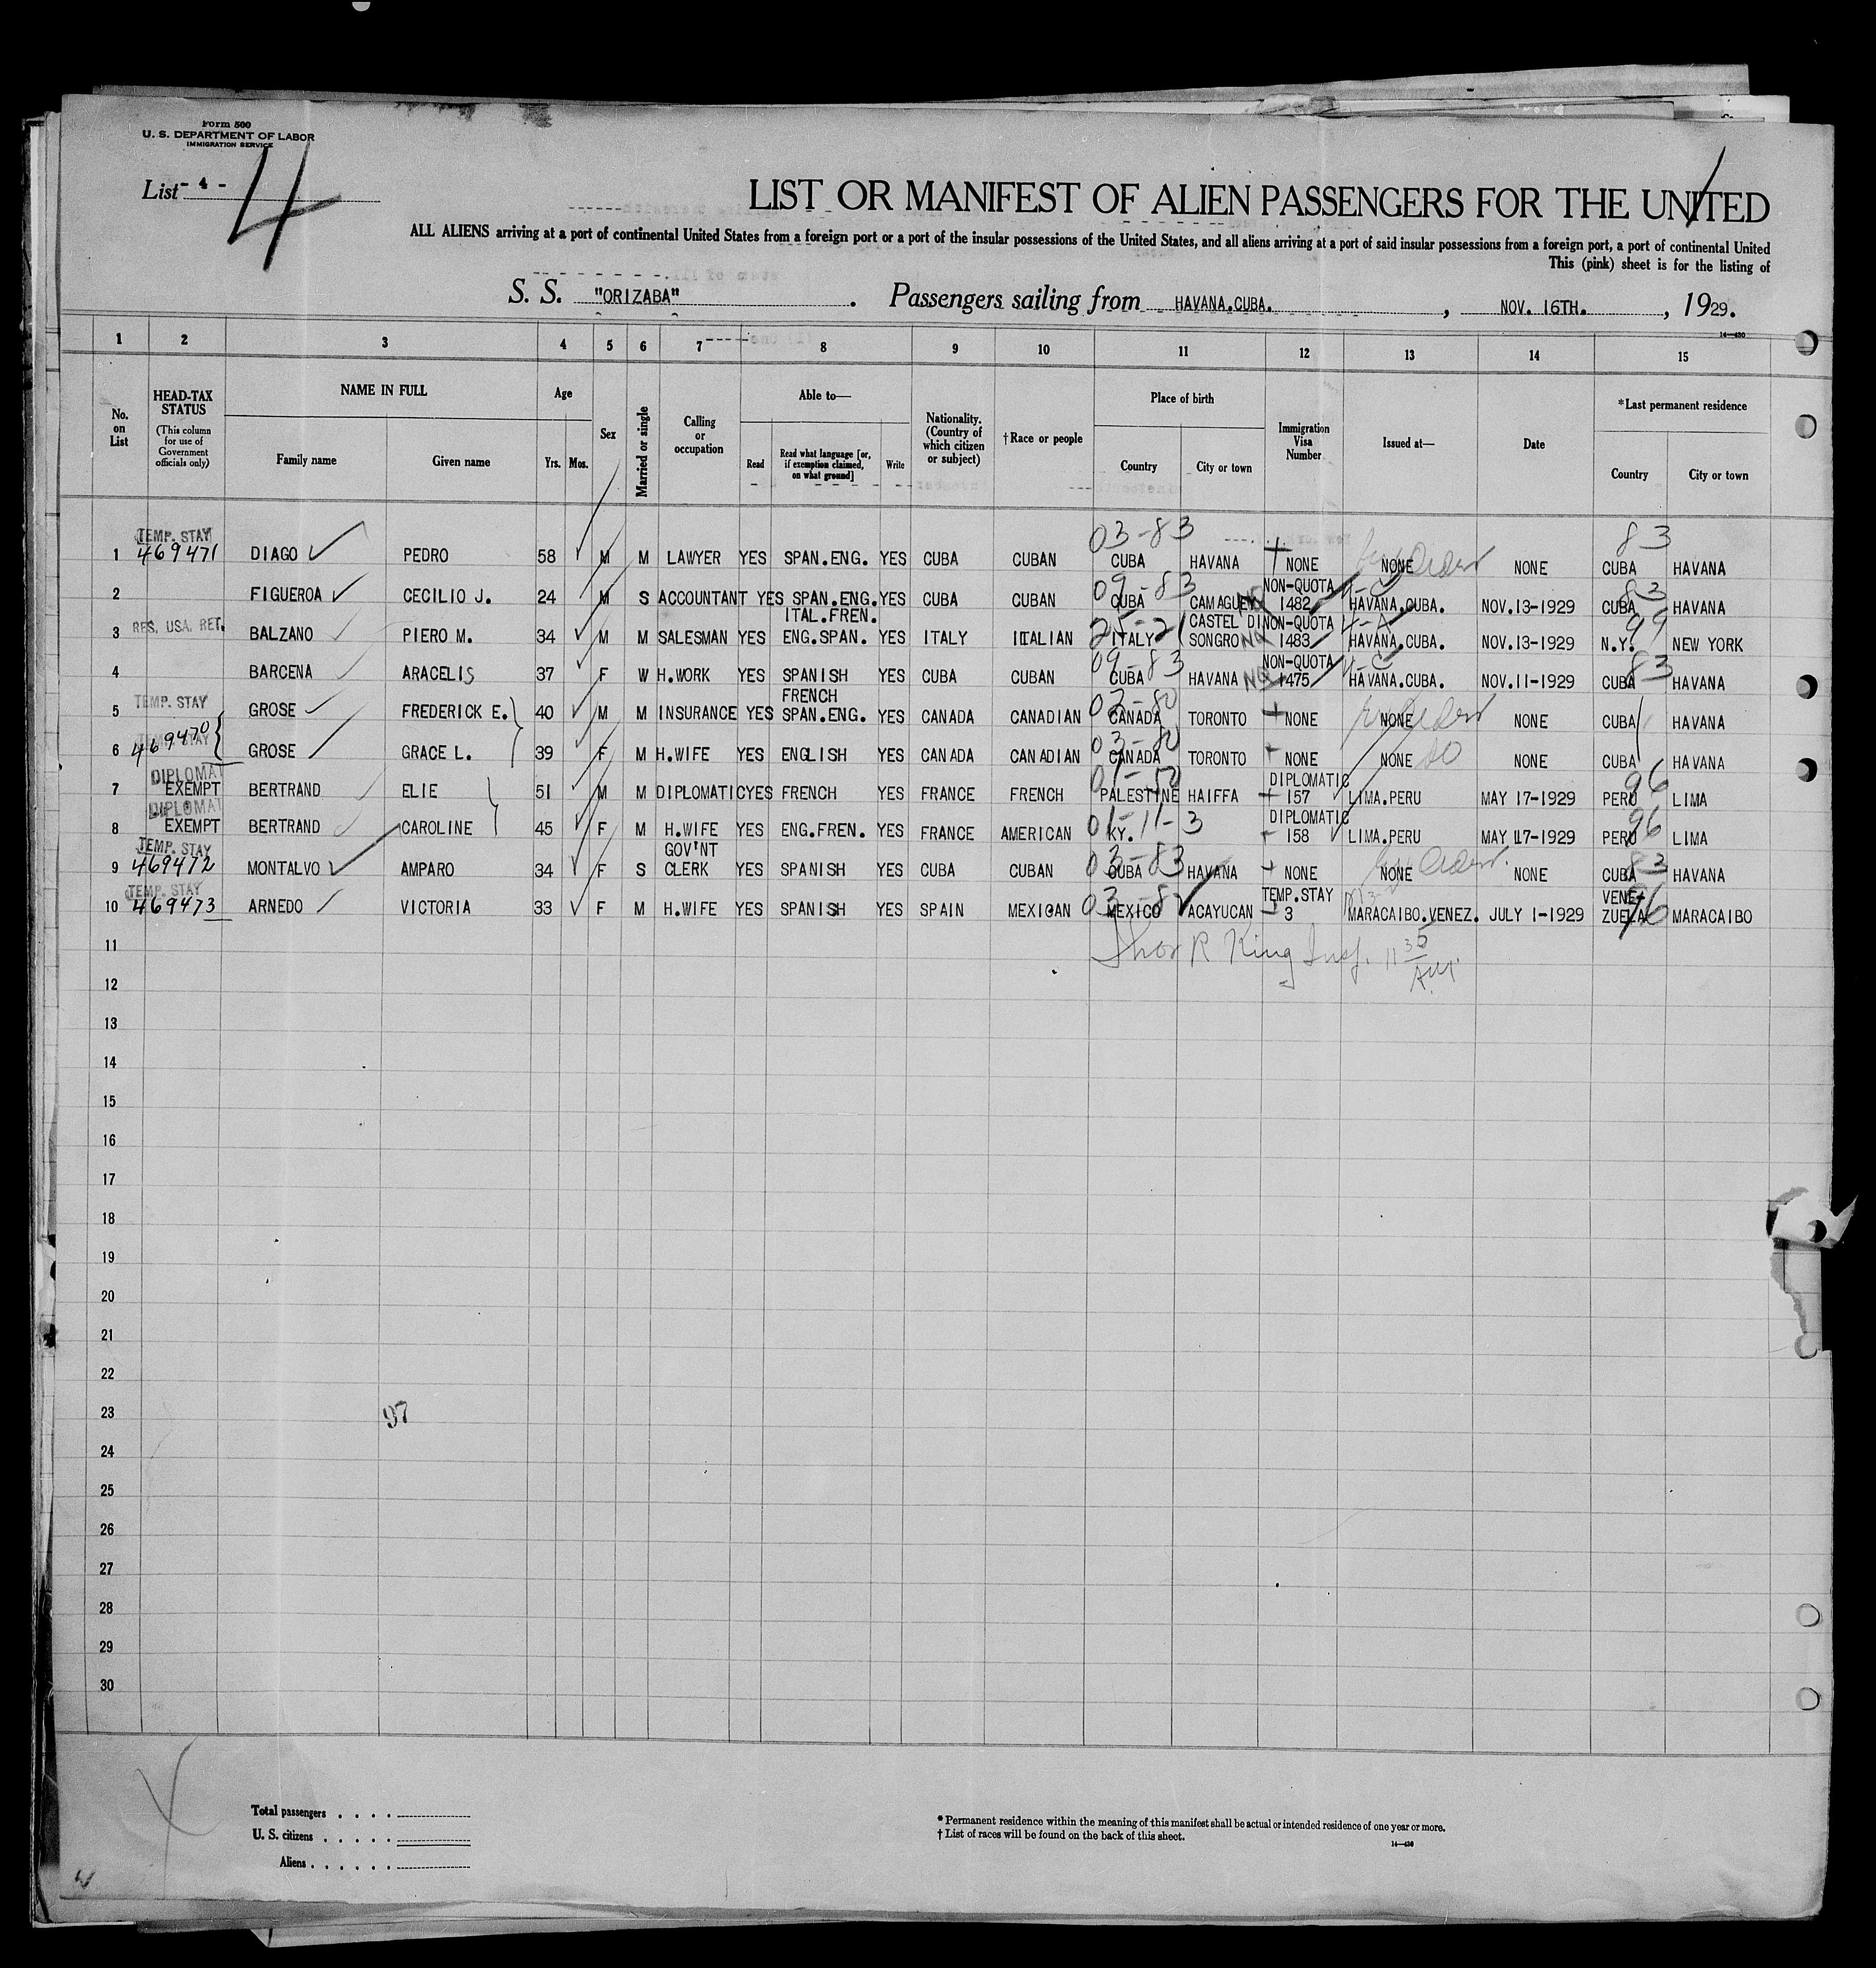 Form 500
U. S. DEPARTMENT OF LABOR
IMMIGRATION SERVICE
List - 4 -
4
LIST OR MANIFEST OF ALIEN PASSENGERS FOR THE UNITED
ALL ALIENS arriving at a port of continental United States from a foreign port or a port of the insular possessions of the United States, and all aliens arriving at a port of said insular possessions from a foreign port, a port of continental United
This (pink) sheet is for the listing of
S. S. "ORIZABA" . Passengers sailing from HAVANA.CUBA. , NOV. 16TH. , 1929.
14—430
1 2 3 4 5 6 7 8 9 10 11 12 13 14 15
No. on List
HEAD-TAX STATUS
(This column for use of Government officials only)
NAME IN FULL
Family name
Given name
Age
Yrs. Mos.
Sex
Married or single
Calling or occupation
Able to—
Read
Read what language [or, if exemption claimed, on what ground]
Write
Nationality. (Country of which citizen or subject)
†Race or people
Place of birth
Country
City or town
Immigration Visa Number
Issued at—
Date
*Last permanent residence
Country
City or town
TEMP. STAY 03-83 83
1 469471 DIAGO PEDRO 58 M M LAWYER YES SPAN.ENG. YES CUBA CUBAN CUBA HAVANA NONE NONE NONE CUBA HAVANA
09-83 NON-QUOTA 83
2 FIGUEROA CECILIO J. 24 M S ACCOUNTANT YES SPAN.ENG. YES CUBA CUBAN CUBA CAMAGUEY 1482 HAVANA.CUBA. NOV.13-1929 CUBA HAVANA
RES. USA. RET. ITAL.FREN. 25-21 CASTEL DI NON-QUOTA 99
3 BALZANO PIERO M. 34 M M SALESMAN YES ENG.SPAN. YES ITALY ITALIAN ITALY SONGRO 1483 HAVANA.CUBA. NOV.13-1929 N.Y. NEW YORK
09-83 NON-QUOTA 83
4 BARCENA ARACELIS 37 F W H.WORK YES SPANISH YES CUBA CUBAN CUBA HAVANA NQ 1475 HAVANA.CUBA. NOV.11-1929 CUBA HAVANA
TEMP. STAY FRENCH 03-80
5 GROSE FREDERICK E. 40 M M INSURANCE YES SPAN.ENG. YES CANADA CANADIAN CANADA TORONTO NONE NONE NONE CUBA HAVANA
469470 TEMP. STAY 03-80
6 GROSE GRACE L. 39 F M H.WIFE YES ENGLISH YES CANADA CANADIAN CANADA TORONTO NONE NONE do NONE CUBA HAVANA
DIPLOMAT 01-50 DIPLOMATIC 96
7 EXEMPT BERTRAND ELIE 51 M M DIPLOMATIC YES FRENCH YES FRANCE FRENCH PALESTINE HAIFFA 157 LIMA.PERU MAY 17-1929 PERU LIMA
DIPLOMAT 01-11-3 DIPLOMATIC 96
8 EXEMPT BERTRAND CAROLINE 45 F M H.WIFE YES ENG.FREN. YES FRANCE AMERICAN KY. 158 LIMA.PERU MAY 17-1929 PERU LIMA
TEMP. STAY GOV'NT 03-83 83
9 469472 MONTALVO AMPARO 34 F S CLERK YES SPANISH YES CUBA CUBAN CUBA HAVANA NONE NONE NONE CUBA HAVANA
TEMP. STAY TEMP.STAY VENE-
10 469473 ARNEDO VICTORIA 33 F M H.WIFE YES SPANISH YES SPAIN MEXICAN MEXICO ACAYUCAN 3 MARACAIBO.VENEZ. JULY 1-1929 ZUELA 96 MARACAIBO
11 Thos R King Insp. 11 35 AM.
12
13
14
15
16
17
18
19
20
21
22
23
97
24
25
26
27
28
29
30
Total passengers . . . .
U. S. citizens . . . . .
Aliens . . . . . .
* Permanent residence within the meaning of this manifest shall be actual or intended residence of one year or more.
† List of races will be found on the back of this sheet.
14—430